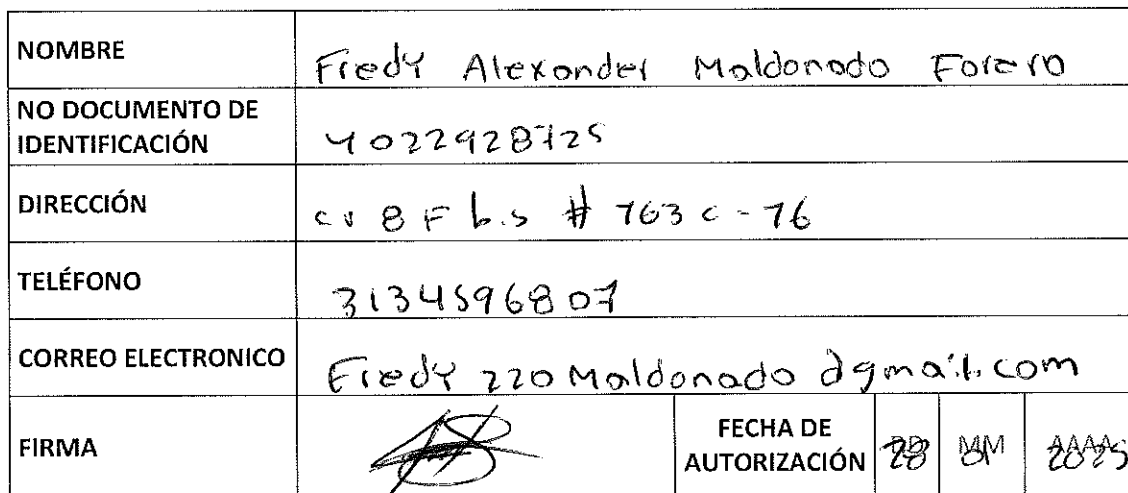 NOMBRE Fredy Alexander Maldonado Forero
NO DOCUMENTO DE
IDENTIFICACIÓN 1022928725
DIRECCIÓN cr 8 F bis # 163 c - 76
TELÉFONO 3134596807
CORREO ELECTRONICO Fredy 220 Maldonado @gmail.com
FIRMA FECHA DE
AUTORIZACIÓN 28 01 2025